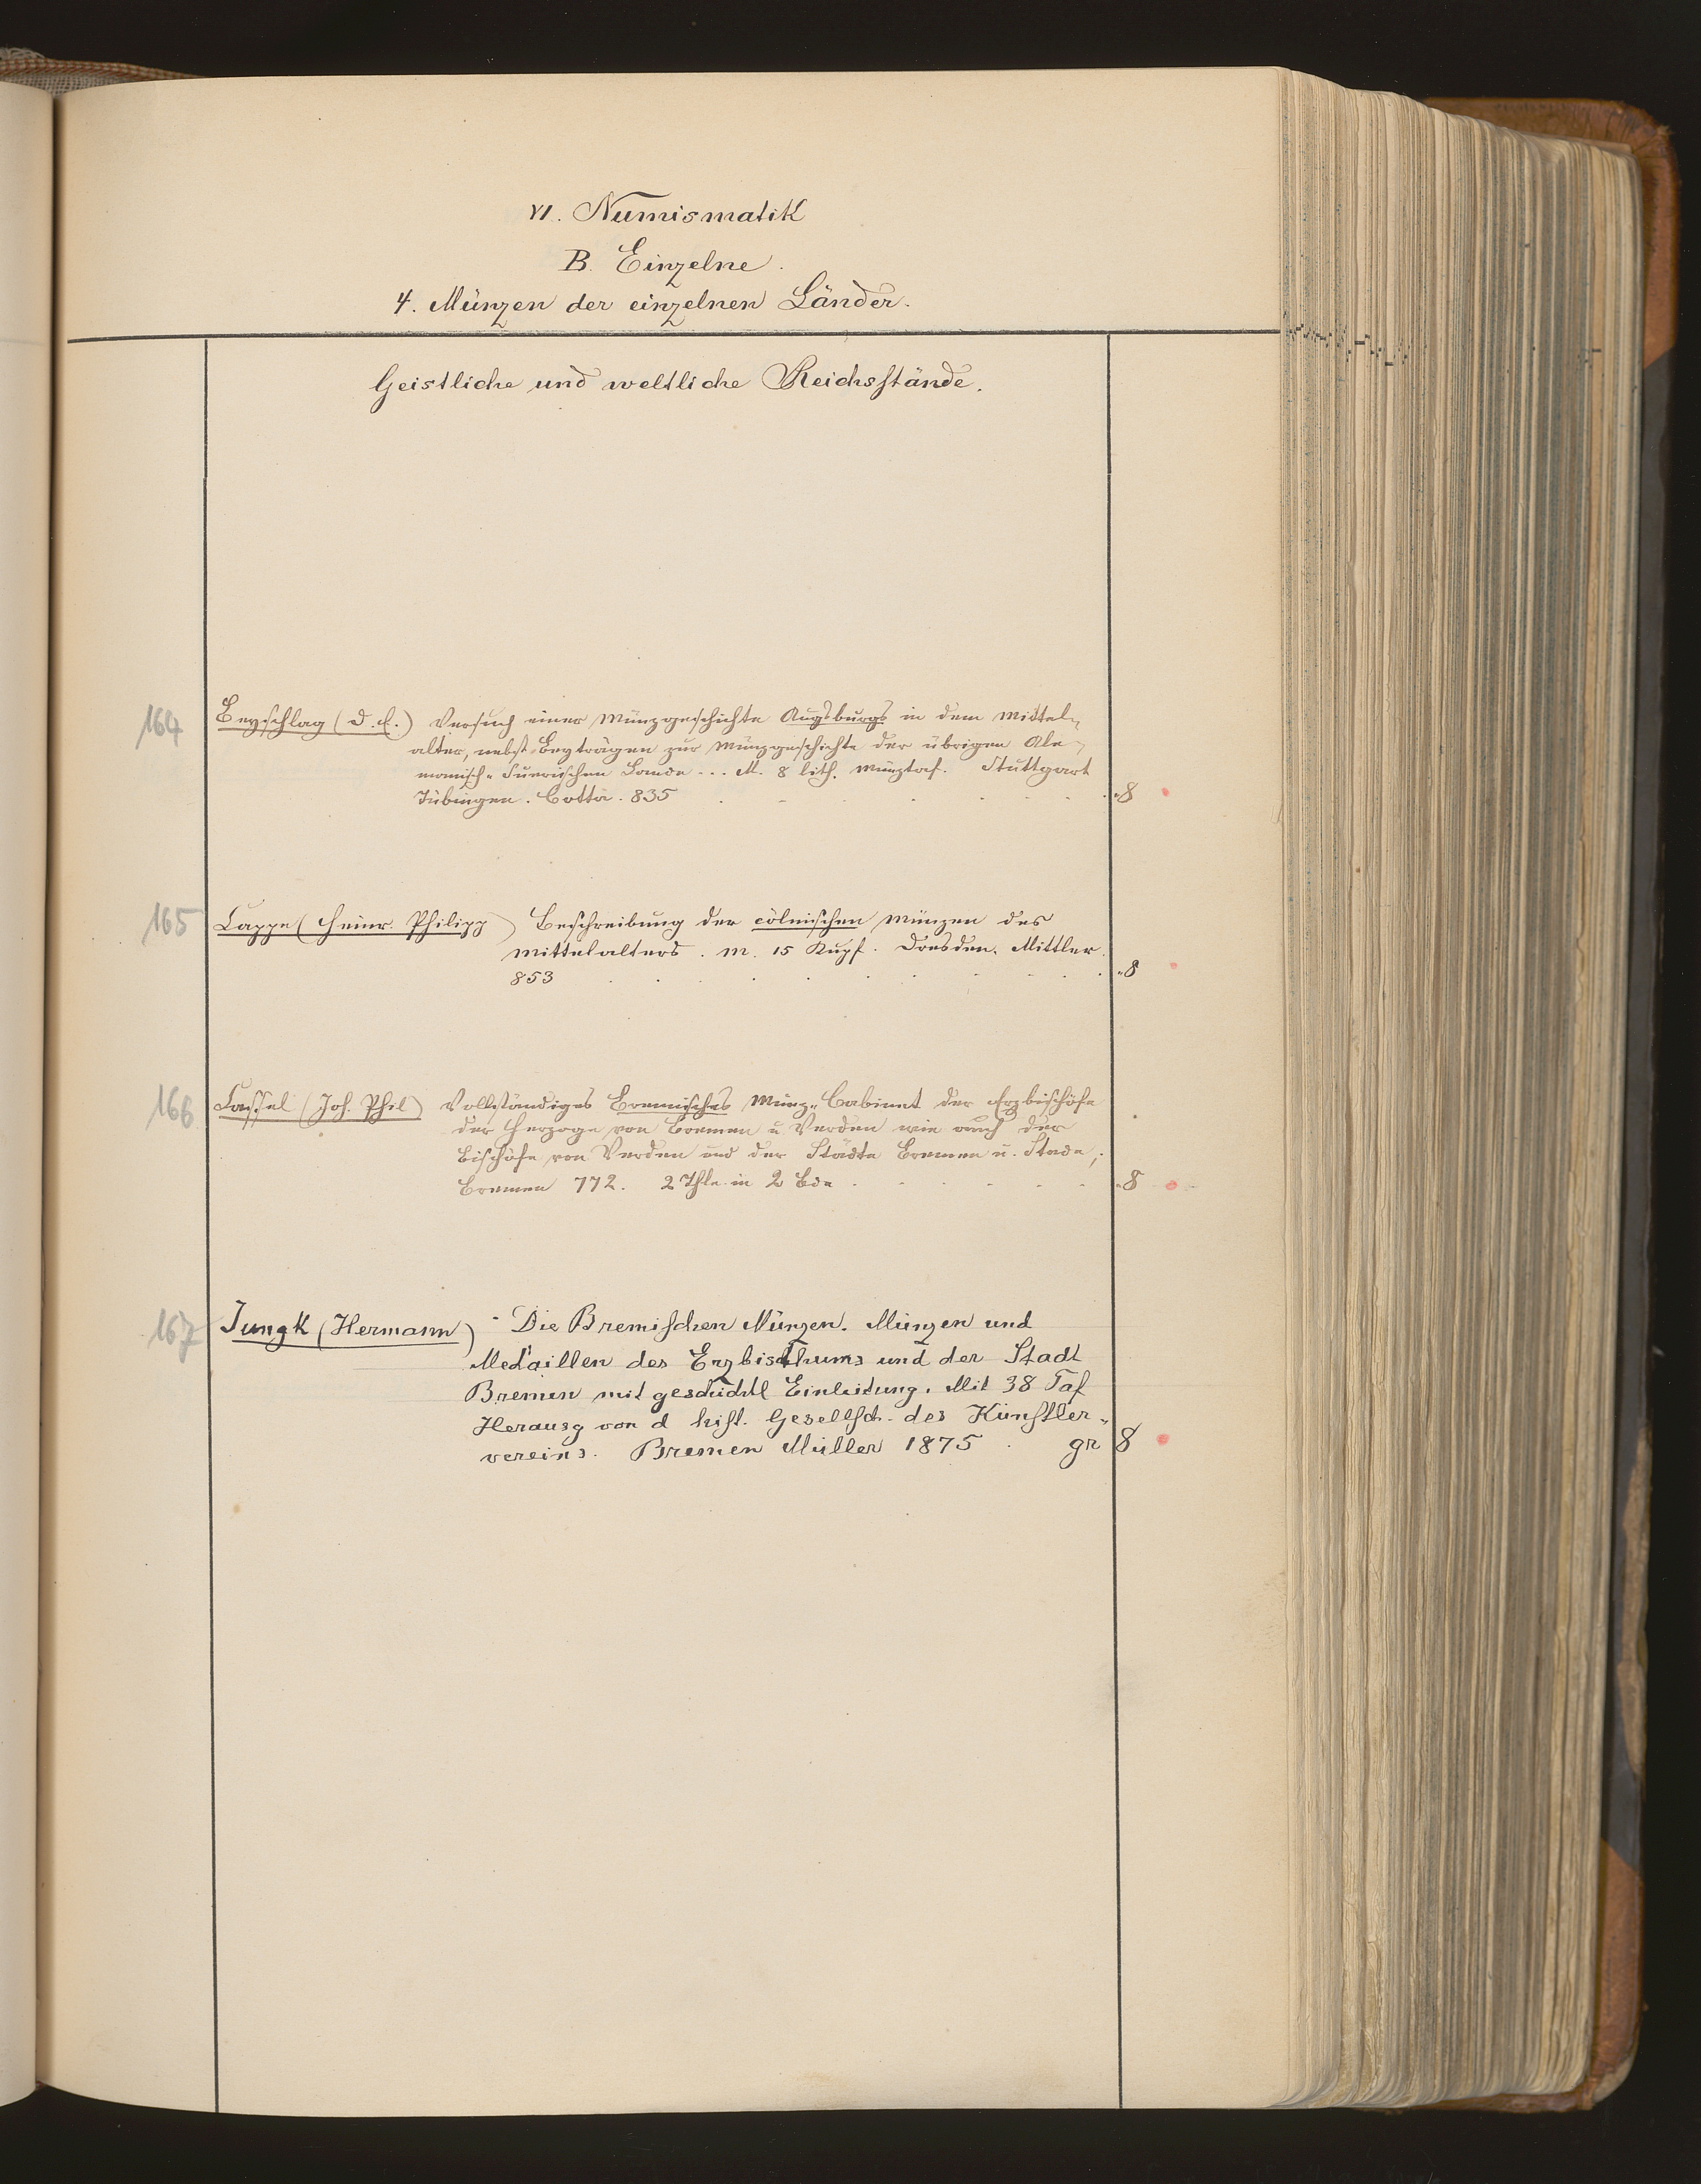 VI. Numismatik
B. Einzelne.
4. Münzen der einzelnen Länder.
Geistliche und weltliche Reichsstände.
164 Beyschlag (D. E.) Versuch einer Münzgeschichte Augsburgs in dem Mittel-
alter, nebst Beyträgen zur Münzgeschichte der übrigen Ale-
manisch-Suevischen Lande... M. 8 lith. Münztaf. Stuttgart
Tübingen. Cotta. 835 . . . . . . . 8
165 Cappe (Heinr. Philipp) Beschreibung der cölnischen Münzen des
Mittelalters. M. 15 Kupf. Dresden. Mittler.
853 . . . . . . . . . . 8
166 Cassel (Joh. Phil) Vollständiges Bremisches Münz-Cabinet der Erzbischöfe
der Herzoge von Bremen u Verden wie auch der
Bischöfe von Verden und der Städte Bremen u. Stade,.
Bremen 772. 2 Thle in 2 Bde . . . . . . 8
167 Jungk (Hermann) Die Bremischen Münzen. Münzen und
Medaillen des Erzbisthums und der Stadt
Bremen mit geschichtl Einleitung. Mit 38 Taf
Herausg von d hist. Gesellsch. des Künstler-
vereins. Bremen Müller 1875 . gr 8